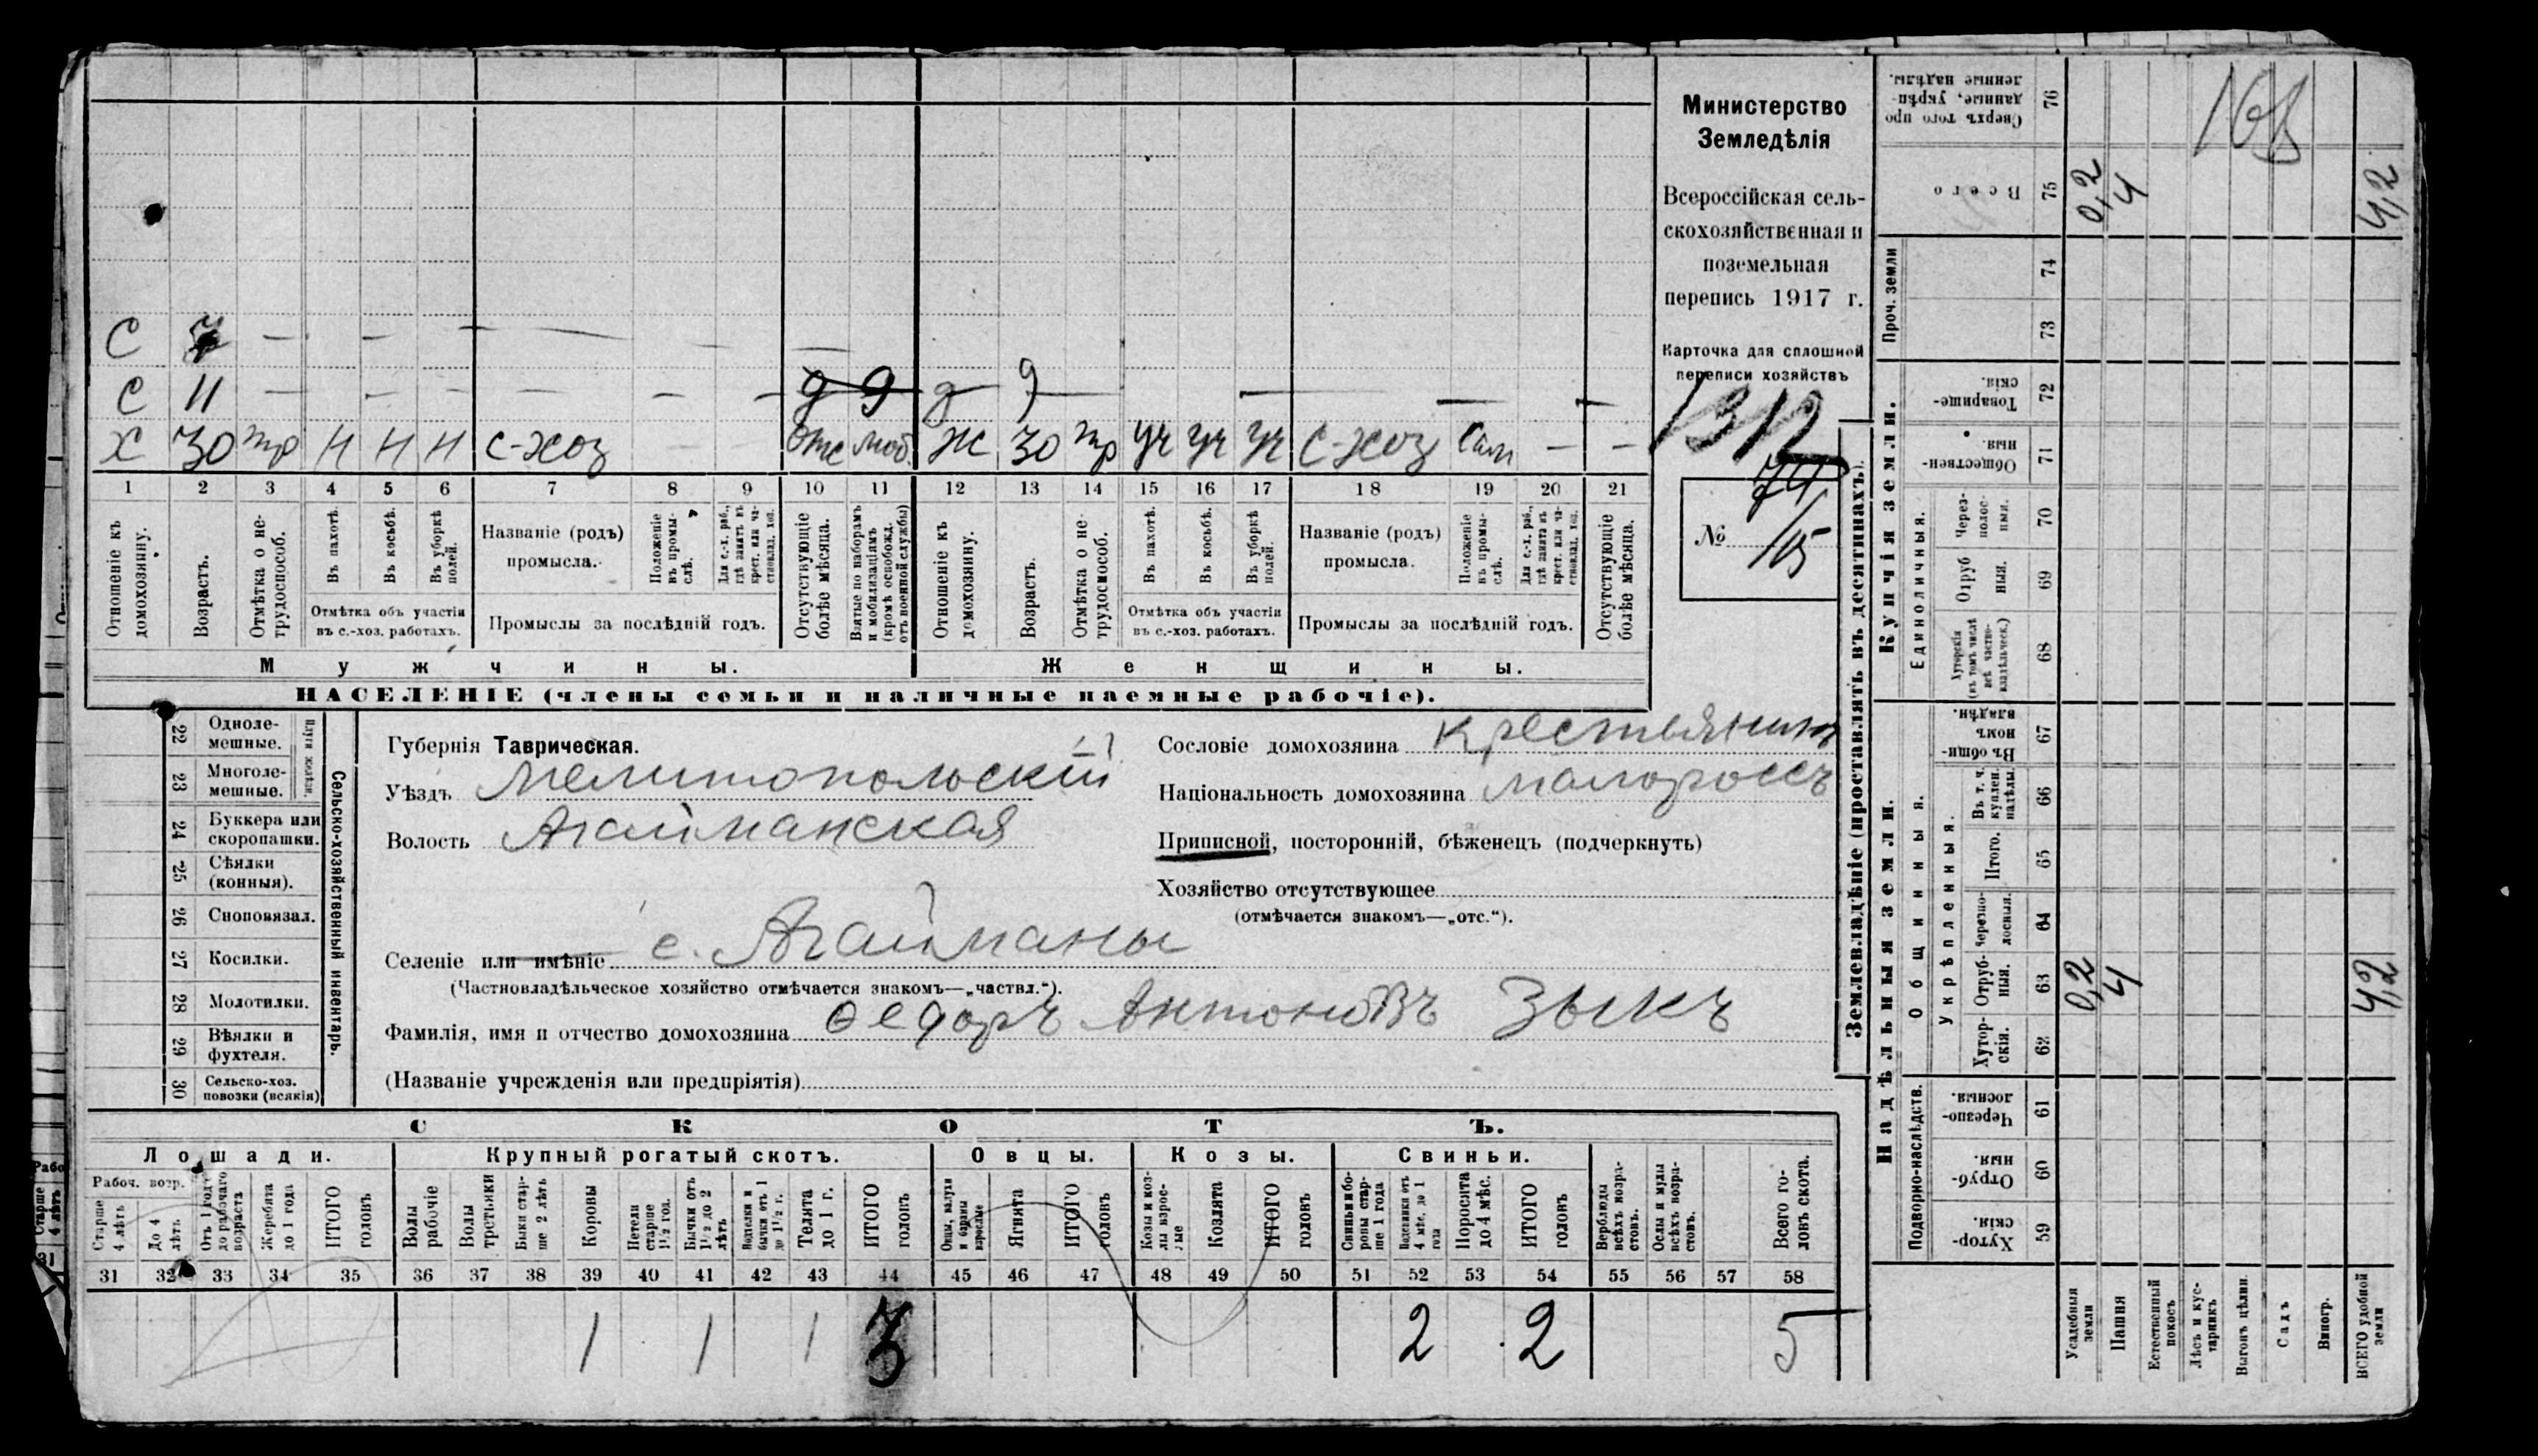 Министерство
Земледѣлія
Всероссійская сель-
скохозяйственная и
поземельная
перепись 1917 г.
Карточка для сплошной
переписи хозяйствъ
1312
№ 15
С 7 — — — — — —
С 11 — — — — — — д 9 — — — —
Х 30 тр Н Н Н с-хоз — — отс моб. Ж 30 тр уч уч уч с-хоз сам — —
1 2 3 4 5 6 7 8 9 10 11 12 13 14 15 16 17 18 19 20 21
Отношеніе къ домохозяину.
Возрастъ.
Отмѣтка о не-трудоспособ.
Въ пахотѣ.
Въ косьбѣ.
Въ уборкѣ полей.
Отмѣтка объ участіи
въ с.-хоз. работахъ.
Названіе (родъ)
промысла.
Положеніе въ промы-слѣ.
Для с.-х. раб., гдѣ занятъ въ крест. или ча-стновлад. хоз.
Промыслы за послѣдній годъ.
Отсутствующіе болѣе мѣсяца.
Взятые по наборамъ и мобилизаціямъ (кромѣ освобожд. отъ военной службы)
Отношеніе къ домохозяину.
Возрастъ.
Отмѣтка о не-трудоспособ.
Въ пахотѣ.
Въ косьбѣ.
Въ уборкѣ полей.
Отмѣтка объ участіи
въ с.-хоз. работахъ.
Названіе (родъ)
промысла.
Положеніе въ промы-слѣ.
Для с.-х. раб., гдѣ занята въ крест. или ча-стновлад. хоз.
Промыслы за послѣдній годъ.
Отсутствующіе болѣе мѣсяца.
Мужчины. Женщины.
НАСЕЛЕНІЕ (члены семьи и наличные наемные рабочіе).
22 Одноле-мешные.
23 Многоле-мешные.
24 Буккера или скоропашки.
25 Сѣялки (конныя).
26 Сноповязал.
27 Косилки.
28 Молотилки.
29 Вѣялки и фухтеля.
30 Сельско-хоз. повозки (всякія)
Сельско-хозяйственный инвентарь.
Губернія Таврическая.
Уѣздъ Мелитопольскій
Волость Агайманская
Селеніе или имѣніе с. Агайманы
(Частновладѣльческое хозяйство отмѣчается знакомъ—„частвл.“).
Фамилія, имя и отчество домохозяина Ѳедоръ Антоновъ Зыкъ
(Названіе учрежденія или предпріятія)
Сословіе домохозяина крестьянинъ
Національность домохозяина малороссъ
Приписной, посторонній, бѣженецъ (подчеркнуть)
Хозяйство отсутствующее
(отмѣчается знакомъ—„отс.“).
СКОТЪ.
Лошади. Крупный рогатый скотъ. Овцы. Козы. Свиньи.
Рабоч. возр.
Старше 4 лѣтъ
До 4 лѣтъ
Отъ 1 года до рабочаго возраста
Жеребята до 1 года
ИТОГО головъ
Волы рабочіе
Волы третьяки
Быки стар-ше 2 лѣтъ
Коровы
Нетели старше 1½ год.
Бычки отъ 1½ до 2 лѣтъ
Телки и бычки отъ 1 до 1½ г.
Телята до 1 г.
ИТОГО головъ
Овцы, валухи и бараны взрослые
Ягнята
ИТОГО головъ
Козы и коз-лы взрос-лые
Козлята
ИТОГО головъ
Свиньи и бо-ровы стар-ше 1 года
Подсвинки отъ 4 мѣс. до 1 года
Поросята до 4 мѣс.
ИТОГО головъ
Верблюды всѣхъ возра-стовъ.
Ослы и мулы всѣхъ возра-стовъ.
Всего го-ловъ скота.
31 32 33 34 35 36 37 38 39 40 41 42 43 44 45 46 47 48 49 50 51 52 53 54 55 56 57 58
1 1 1 3 2 2 5
Землевладѣніе (проставлять въ десятинахъ).
Купчія земли.
Надѣльныя земли.
Сверхъ того про данные, укрѣп-ленные надѣлы. 76
Всего 75 0,2 4 4,2
Проч. земли 74 73
Товарище-скія. 72
Обществен-ныя. 71
Единоличныя.
Через-полос-ныя. 70
Отруб ныя. 69
Хуторскія (въ томъ числѣ всѣ частно-владѣльческ.) 68
Общинныя.
Въ общин номъ владѣн. 67
Укрѣпленныя.
Въ т. ч. куплен. надѣлы. 66
Итого. 65
Черезпо-лосныя. 64
Отруб-ныя. 63 0,2 4 4,2
Хутор-скія. 62
Подворно-наслѣдств.
Черезпо-лосныя. 61
Отруб-ныя. 60
Хутор-скія. 59
Усадебныя земли
Пашня
Естественный покосъ
Лѣсъ и кус-тарникъ
Выгонъ цѣлин.
Садъ
Виногр.
ВСЕГО удобной земли